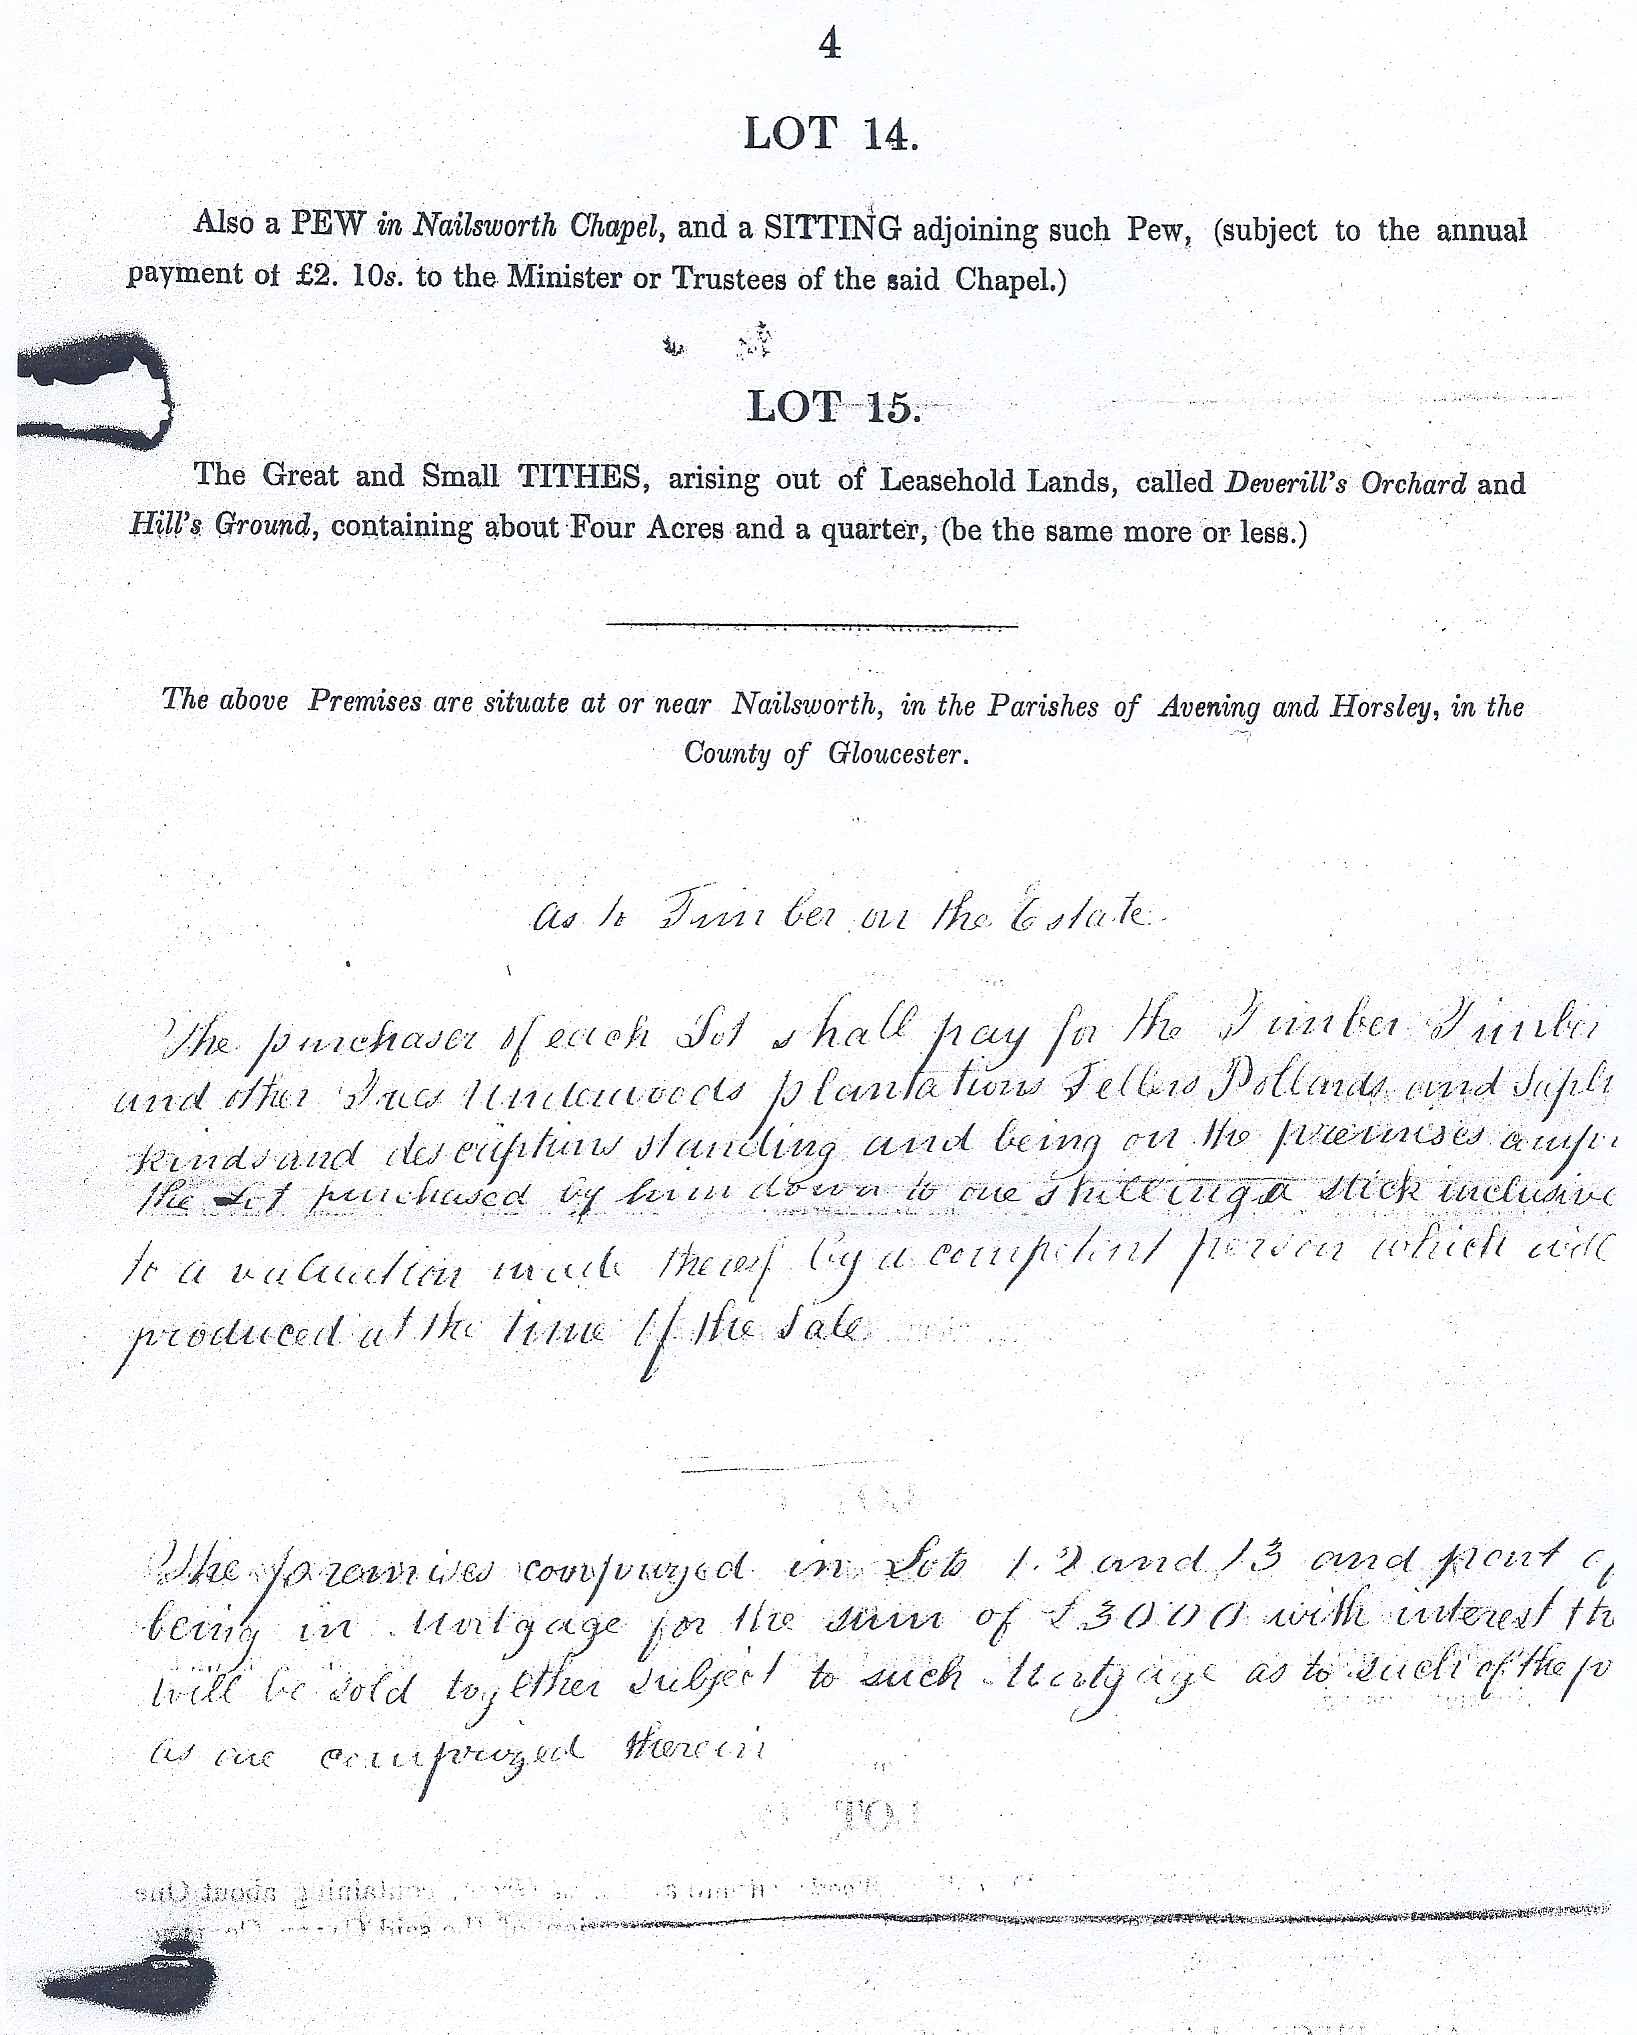 4
LOT 14.
Also a PEW in Nailsworth Chapel, and a SITTING adjoining such Pew, (subject to the annual
payment of £2. 10s. to the Minister or Trustees of the said Chapel.)
LOT 15.
The Great and Small TITHES, arising out of Leasehold Lands, called Deverill's Orchard and
Hill's Ground, containing about Four Acres and a quarter, (be the same more or less.)
The above Premises are situate at or near Nailsworth, in the Parishes of Avening and Horsley, in the
County of Gloucester.
as to Timber on the Estate
The purchaser of each Lot shall pay for the Timber Timber
and other Trees Underwoods plantations Tellers Pollards and Sapli
kinds and descriptions standing and being on the premises compr
the Lot purchased by him down to one shilling a stick inclusive
to a valuation made thereof by a competent person which will
produced at the time of the Sale
The premises comprized in Lots 1. 2 and 13 and part of
being in Mortgage for the sum of £3000 with interest th
will be sold together subject to such Mortgage as to such of the p
as are comprized therein
LOT
containing about One